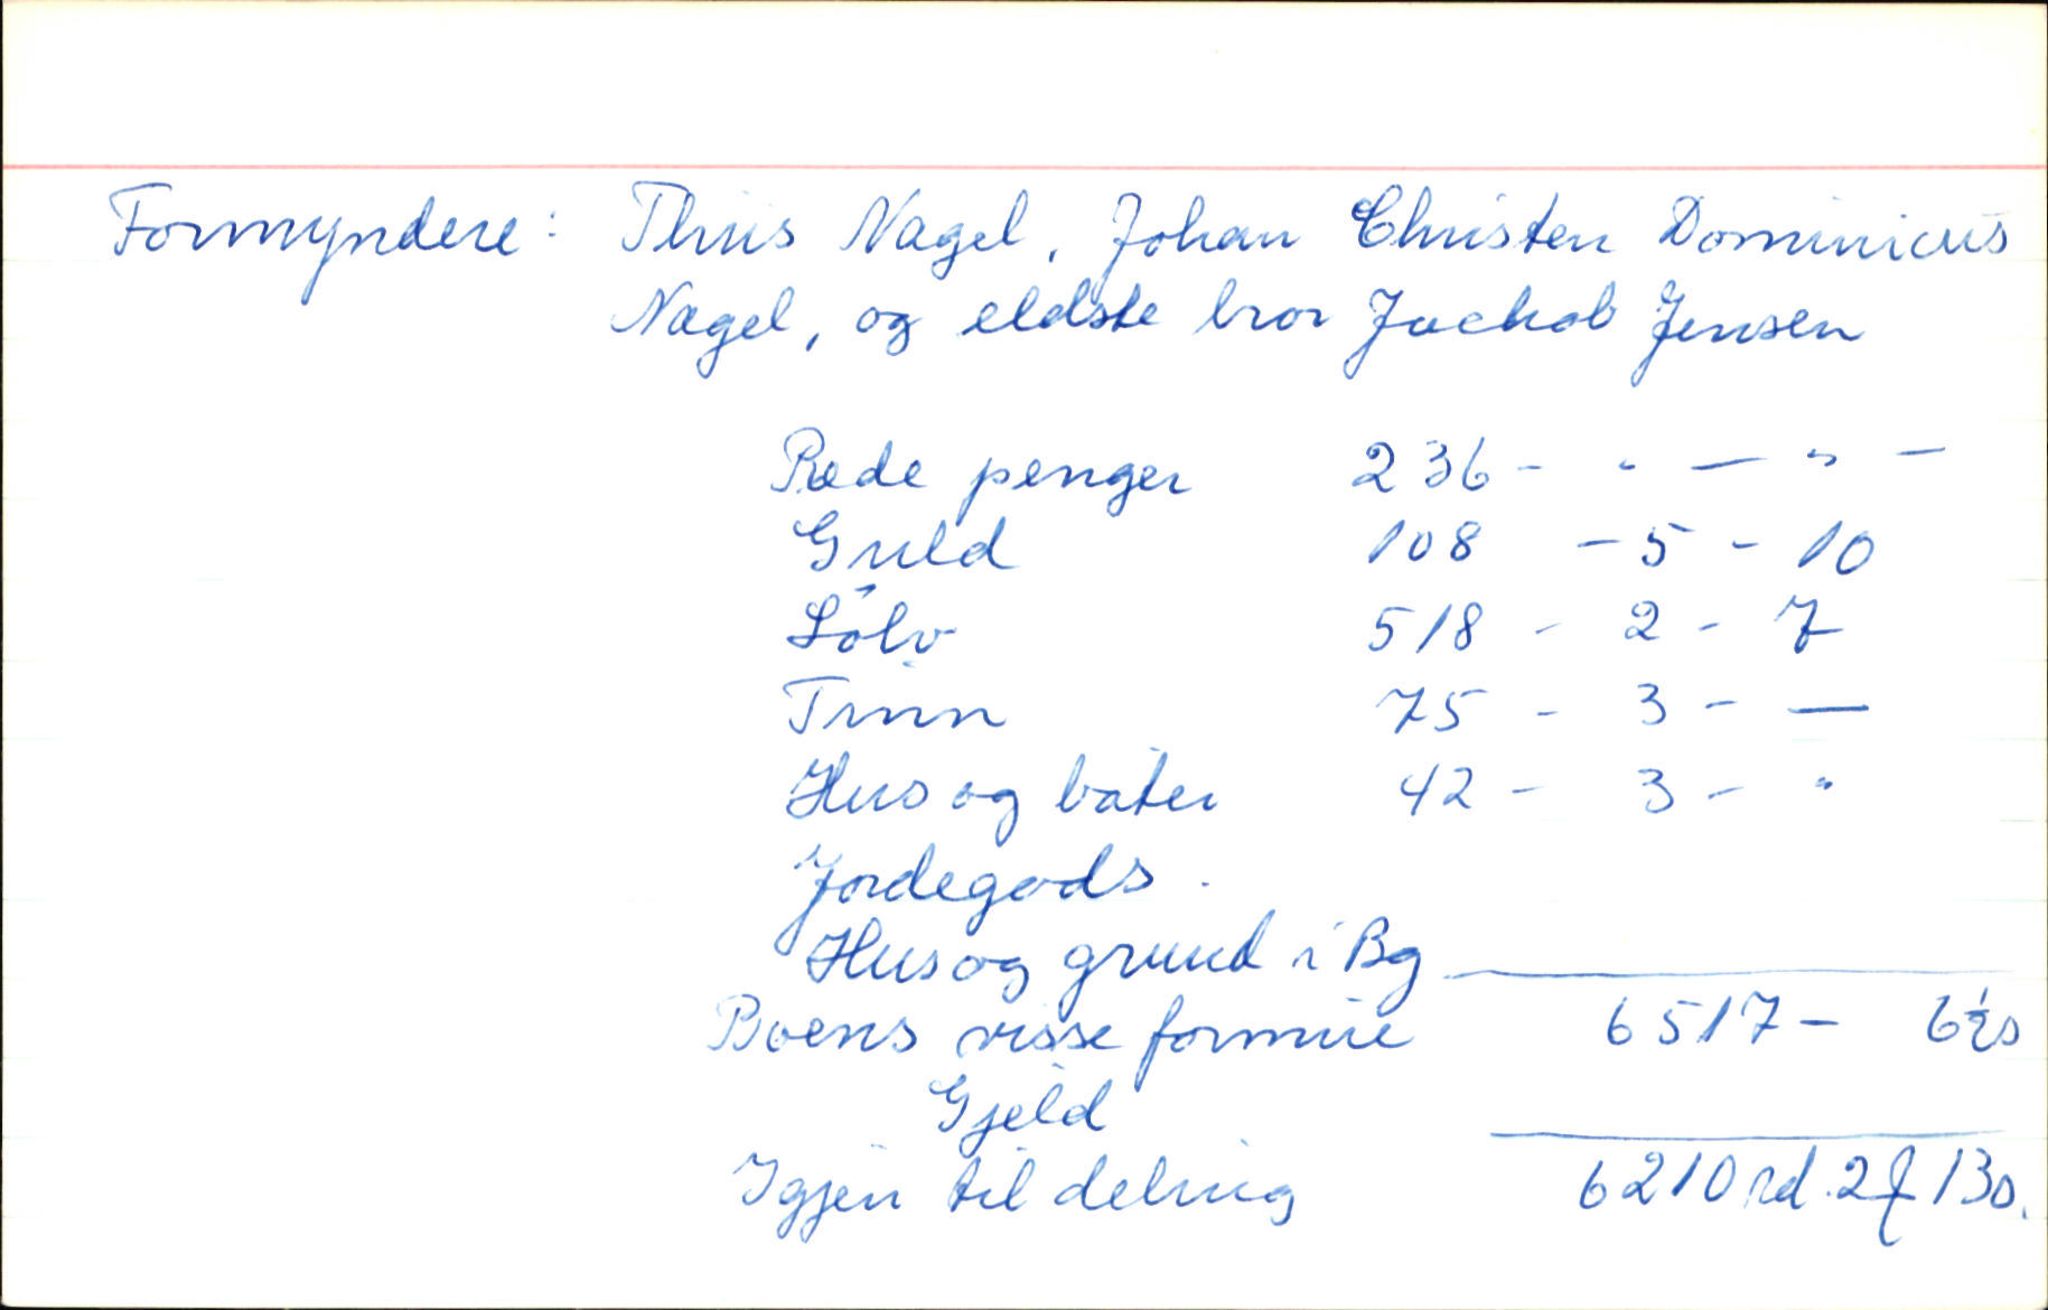 Formyndere: Thiis Nagel, Johan Christen Dominicus
Nagel, og eldste bror Jackob Jensen
Rede penger 236 - " - " -
Guld 108 - 5 - 10
Sölv 518 - 2 - 7
Tinn 75 - 3 - —
Hus og båter 42 - 3 - "
Jordegods.
Hus og grund i Bg
Boens visse formue 6517 - 6½s
Gjeld
Igjen til deling 6210 rd. 2 13s.